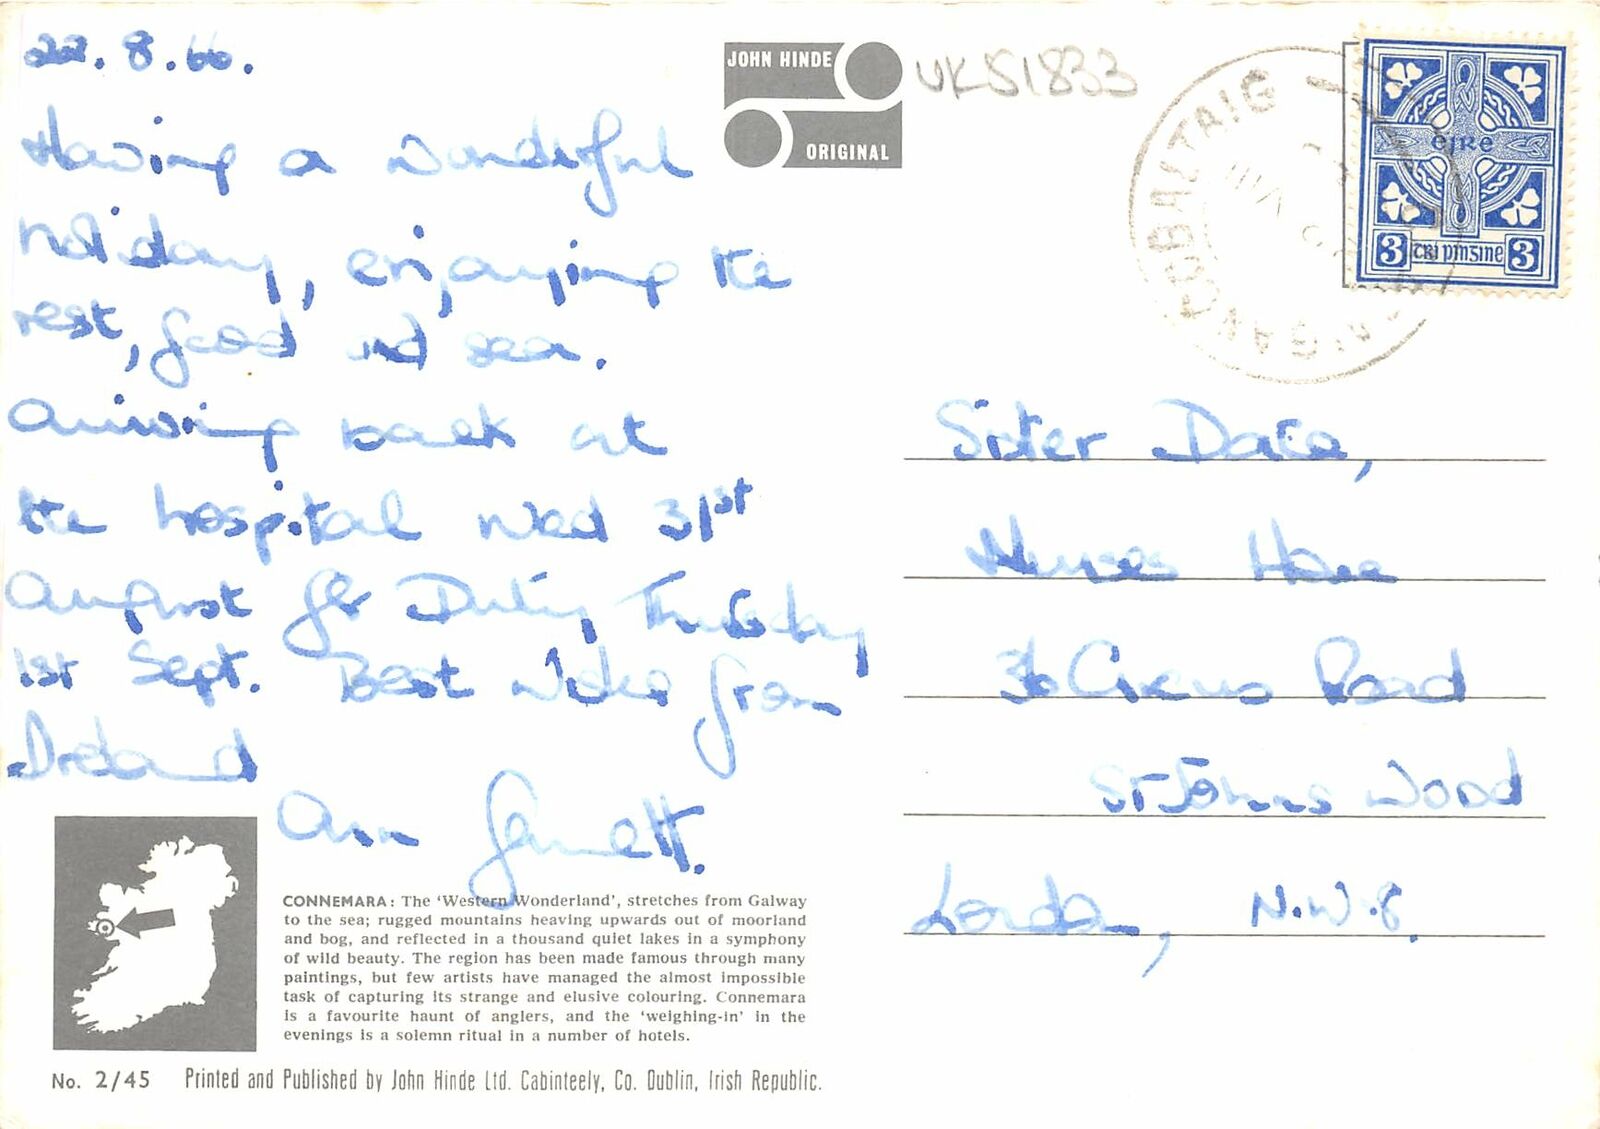 22.8.66.
Having a wonderful
holiday, enjoying the
rest, food and sea.
Arriving back at
the hospital Wed 31st
August for Duty Thursday
1st Sept. Best Wishes from
Ireland
Ann Garnett.
JOHN HINDE
ORIGINAL
UKS1833
éire
3 trí pingine 3
Sister Dace,
Nurses Home
36 Circus Road
St Johns Wood
London, N.W.8.
CONNEMARA: The 'Western Wonderland', stretches from Galway
to the sea; rugged mountains heaving upwards out of moorland
and bog, and reflected in a thousand quiet lakes in a symphony
of wild beauty. The region has been made famous through many
paintings, but few artists have managed the almost impossible
task of capturing its strange and elusive colouring. Connemara
is a favourite haunt of anglers, and the 'weighing-in' in the
evenings is a solemn ritual in a number of hotels.
No. 2/45 Printed and Published by John Hinde Ltd. Cabinteely, Co. Dublin, Irish Republic.